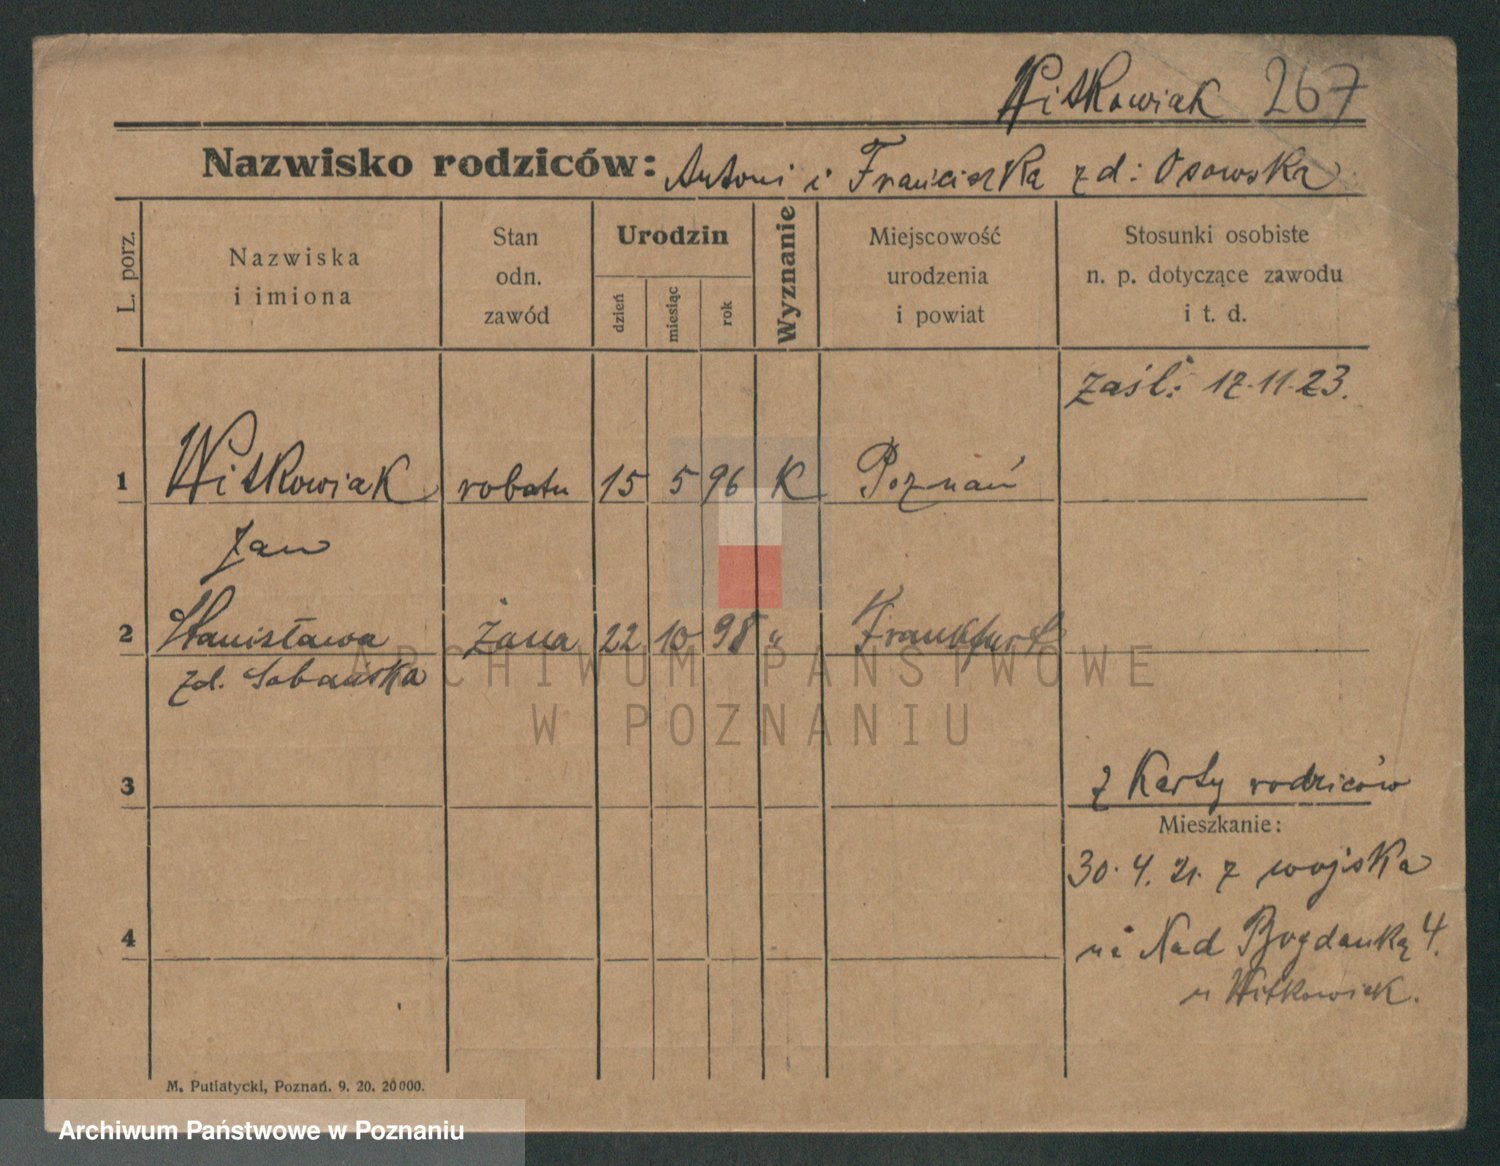 Witkowiak 267
Nazwisko rodziców: Antoni i Franciszka zd: Osowska
L. porz.
Nazwiska
i imiona
Stan
odn.
zawód
Urodzin
dzień
miesiąc
rok
Wyznanie
Miejscowość
urodzenia
i powiat
Stosunki osobiste
n. p. dotyczące zawodu
i t. d.
zaśl: 17.11.23.
1 Witkowiak robotn 15 5 96 K Poznań
Jan
2 Stanisława żona 22 10 98 " Frankfurt
zd. Sobańska
ARCHIWUM PAŃSTWOWE
W POZNANIU
3 z Karty rodziców
Mieszkanie:
30. 4. 21. z wojska
4 na Nad Bogdanką 4.
u Witkowiak.
M. Putiatycki, Poznań. 9. 20. 20000.
Archiwum Państwowe w Poznaniu